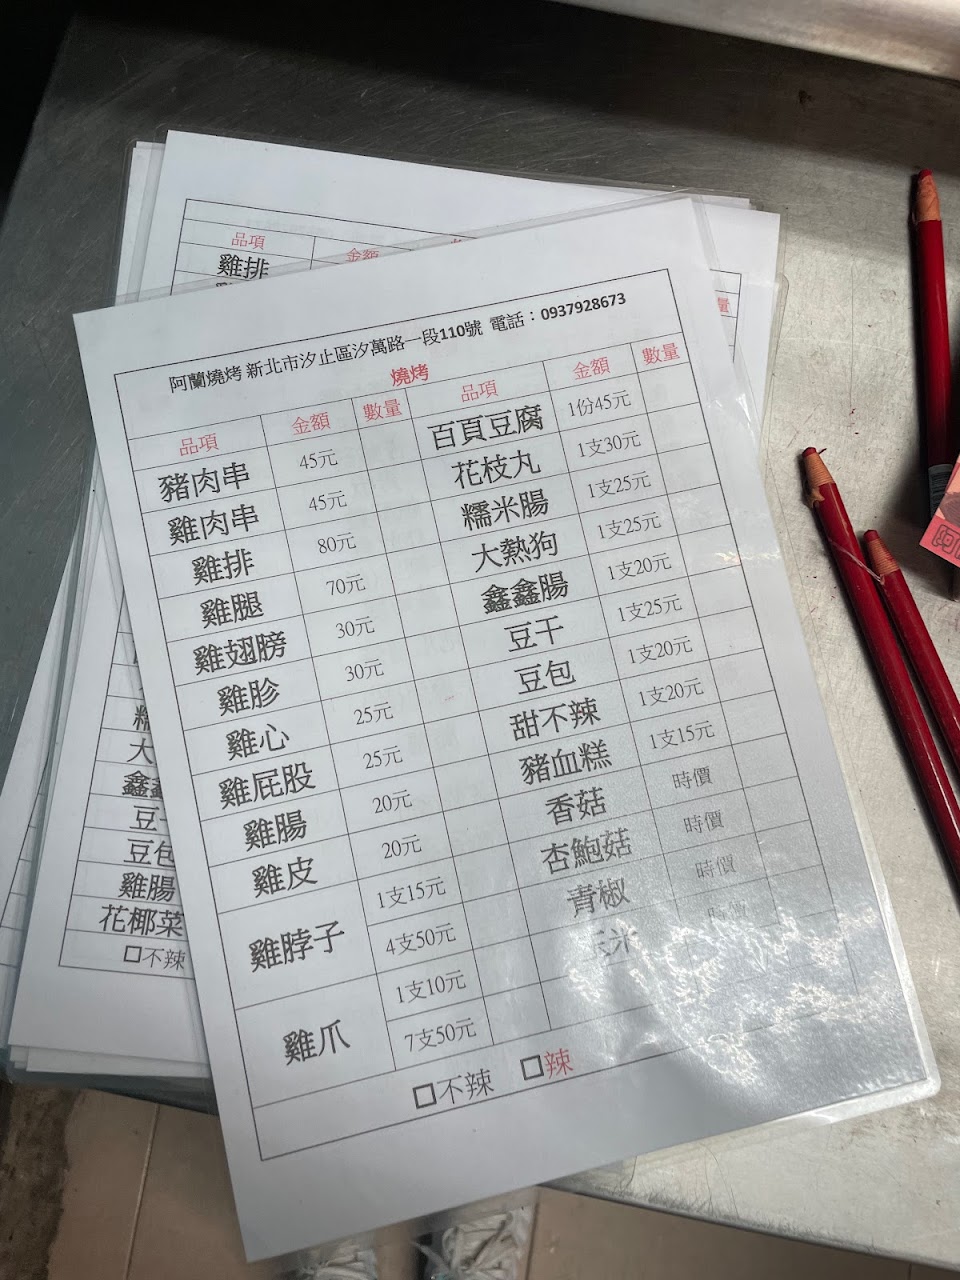 品項 金額
雞排
量
阿蘭燒烤 新北市汐止區汐萬路一段110號 電話：0937928673
燒烤
品項 金額 數量 品項 金額 數量
豬肉串 45元 百頁豆腐 1份45元
雞肉串 45元 花枝丸 1支30元
雞排 80元 糯米腸 1支25元
雞腿 70元 大熱狗 1支25元
雞翅膀 30元 鑫鑫腸 1支20元
雞胗 30元 豆干 1支25元
雞心 25元 豆包 1支20元
雞屁股 25元 甜不辣 1支20元
雞腸 20元 豬血糕 1支15元
雞皮 20元 香菇 時價
雞脖子 1支15元 杏鮑菇 時價
4支50元 青椒 時價
雞爪 1支10元 玉米 時價
7支50元
□不辣 □辣
大
鑫
豆
豆包
雞腸
花椰菜
□不辣